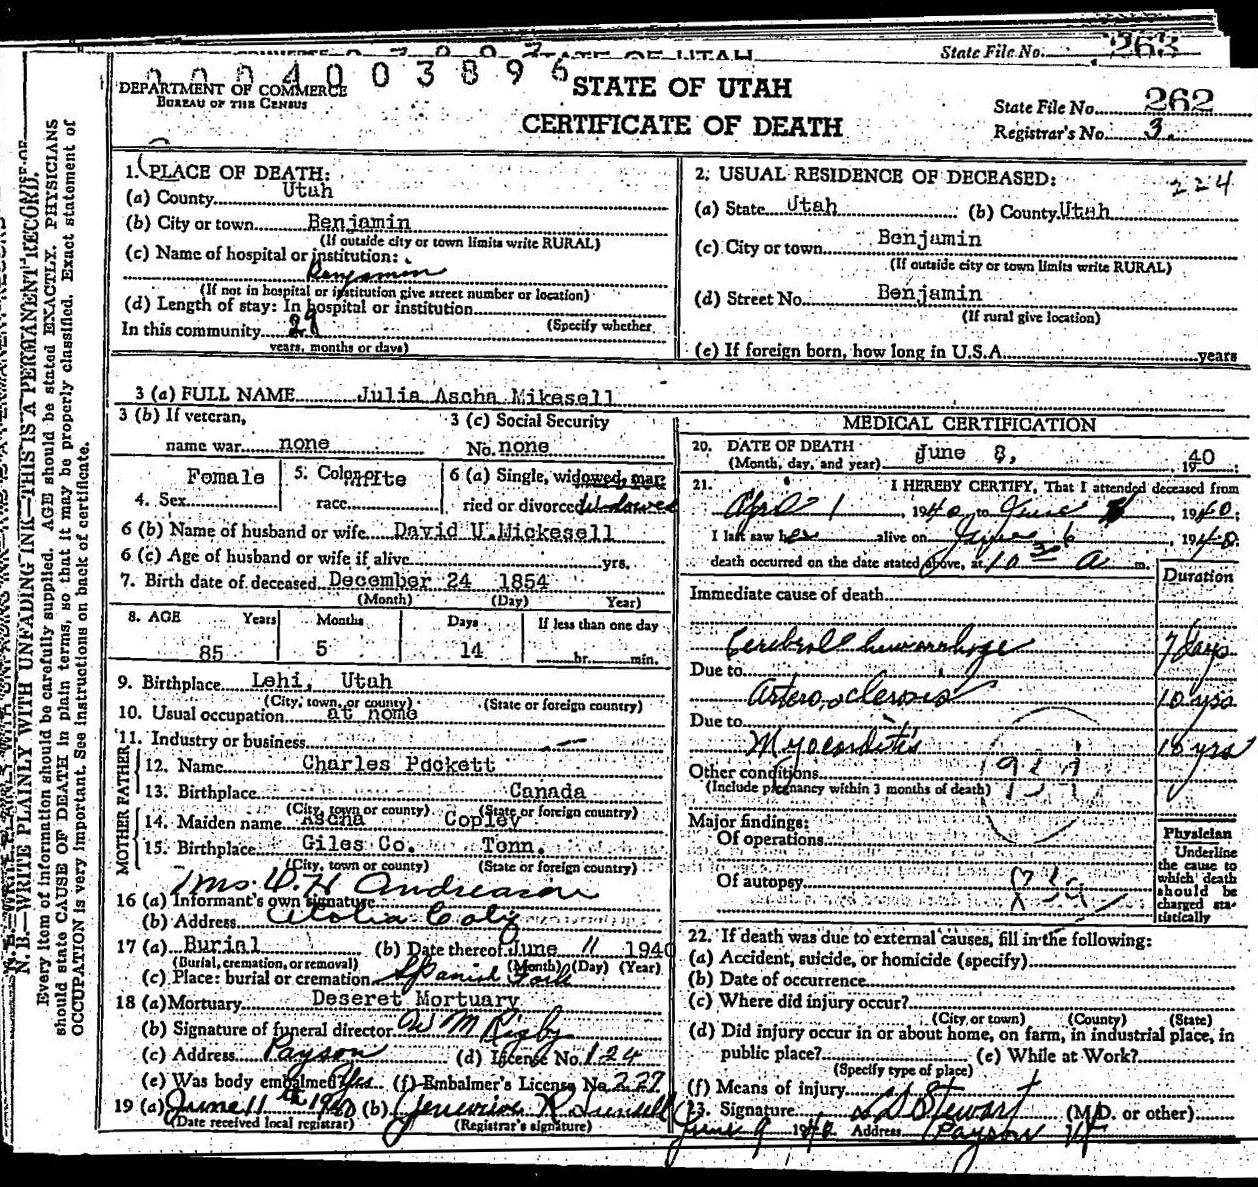 STATE OF UTAH
State File No. 263
0004003896
DEPARTMENT OF COMMERCE
BUREAU OF THE CENSUS
STATE OF UTAH
CERTIFICATE OF DEATH
State File No. 262
Registrar's No. 3.
N. B.—WRITE PLAINLY WITH UNFADING INK—THIS IS A PERMANENT RECORD.
Every item of information should be carefully supplied. AGE should be stated EXACTLY. PHYSICIANS
should state CAUSE OF DEATH in plain terms, so that it may be properly classified. Exact statement of
OCCUPATION is very important. See instructions on back of certificate.
1. PLACE OF DEATH:
(a) County Utah
(b) City or town Benjamin
(If outside city or town limits write RURAL)
(c) Name of hospital or institution:
Benjamin
(If not in hospital or institution give street number or location)
(d) Length of stay: In hospital or institution
(Specify whether
In this community 29
years, months or days)
2. USUAL RESIDENCE OF DECEASED:
224
(a) State Utah (b) County Utah
(c) City or town Benjamin
(If outside city or town limits write RURAL)
(d) Street No. Benjamin
(If rural give location)
(e) If foreign born, how long in U.S.A. years
3 (a) FULL NAME Julia Ascha Mikesell
3 (b) If veteran, 3 (c) Social Security
name war none No. none
4. Sex Female 5. Color or race White 6 (a) Single, widowed, married or divorced Widowed
6 (b) Name of husband or wife David U. Mickesell
6 (c) Age of husband or wife if alive yrs.
7. Birth date of deceased December 24 1854
(Month) (Day) Year)
8. AGE Years Months Days If less than one day
85 5 14 hr. min.
9. Birthplace Lehi, Utah
(City, town, or county) (State or foreign country)
10. Usual occupation at home
11. Industry or business
FATHER
12. Name Charles Pockett
13. Birthplace Canada
(City, town or county) (State or foreign country)
MOTHER
14. Maiden name Ascha Copley
15. Birthplace Giles Co. Tenn.
(City, town or county) (State or foreign country)
16 (a) Informant's own signature Mrs. D. H Andreason
(b) Address
17 (a) Burial (b) Date thereof June 11 1940
(Burial, cremation, or removal) (Month) (Day) (Year)
(c) Place: burial or cremation Spanish Fork
18 (a) Mortuary Deseret Mortuary
(b) Signature of funeral director W M Rigby
(c) Address Payson (d) License No. 124
(e) Was body embalmed? Yes (f) Embalmer's License No. 227
19 (a) June 11th 1940 (b)
(Date received local registrar) (Registrar's signature)
MEDICAL CERTIFICATION
20. DATE OF DEATH
(Month, day, and year) June 8, 1940
21. I HEREBY CERTIFY, That I attended deceased from
April 1, 1940, to June 8 1940.
I last saw her alive on June 6, 1940.
death occurred on the date stated above, at 10 30 A m.
Duration
Immediate cause of death
Cerebral hemorrhage 7 days
Due to
Arterosclerosis 10 yrs
Due to
Myocarditis 10 yrs
Other conditions
(Include pregnancy within 3 months of death)
Major findings:
Of operations
Of autopsy
83a
Physician
Underline
the cause to
which death
should be
charged sta-
tistically
22. If death was due to external causes, fill in the following:
(a) Accident, suicide, or homicide (specify)
(b) Date of occurrence
(c) Where did injury occur?
(City, or town) (County) (State)
(d) Did injury occur in or about home, on farm, in industrial place, in
public place? (e) While at Work?
(Specify type of place)
(f) Means of injury
23. Signature L D Stewart (M.D. or other)
June 9 1940 Address Payson Ut